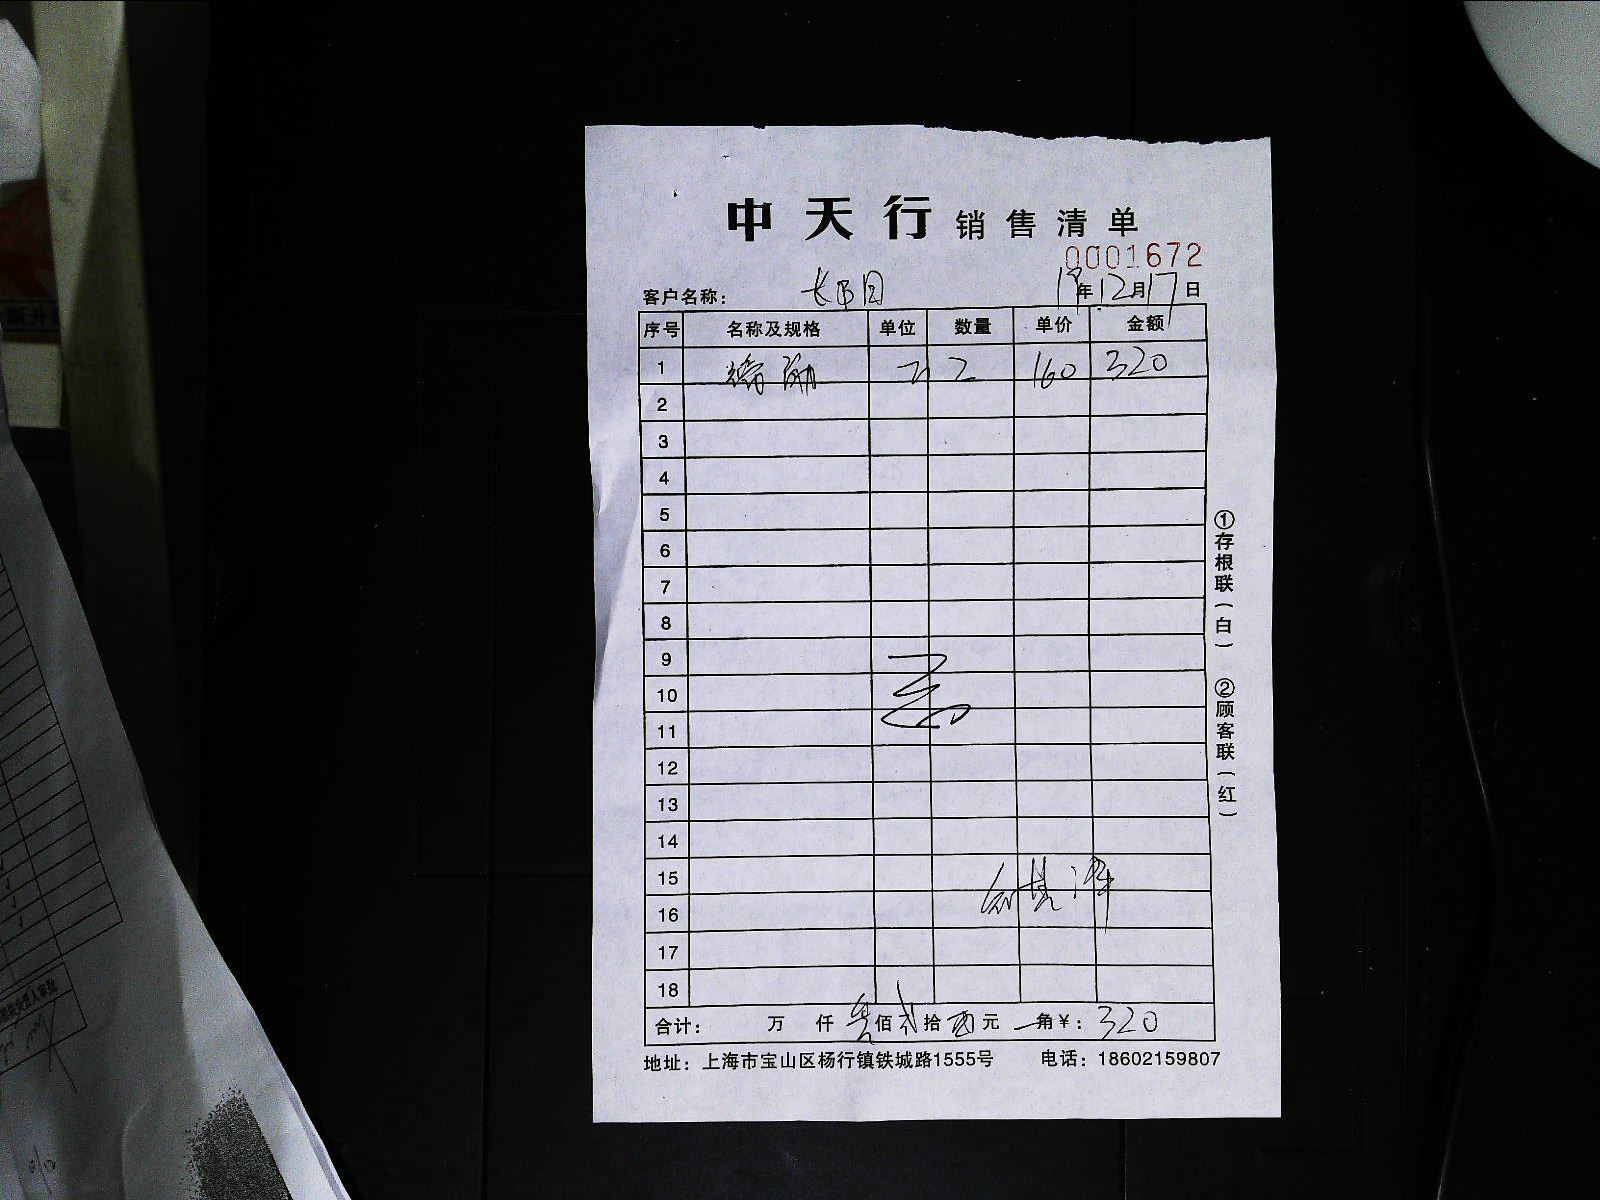 中天行 销售清单
0001672
客户名称： 年12月17日
序号 名称及规格 单位 数量 单价 金额
1 2 160 320
2
3
4
5
6
7
8
9
10
11
12
13
14
15
16
17
18
合计： 万 仟 叁佰贰拾 元 角￥：320
地址：上海市宝山区杨行镇铁城路1555号 电话：18602159807
①存根联（白） ②顾客联（红）